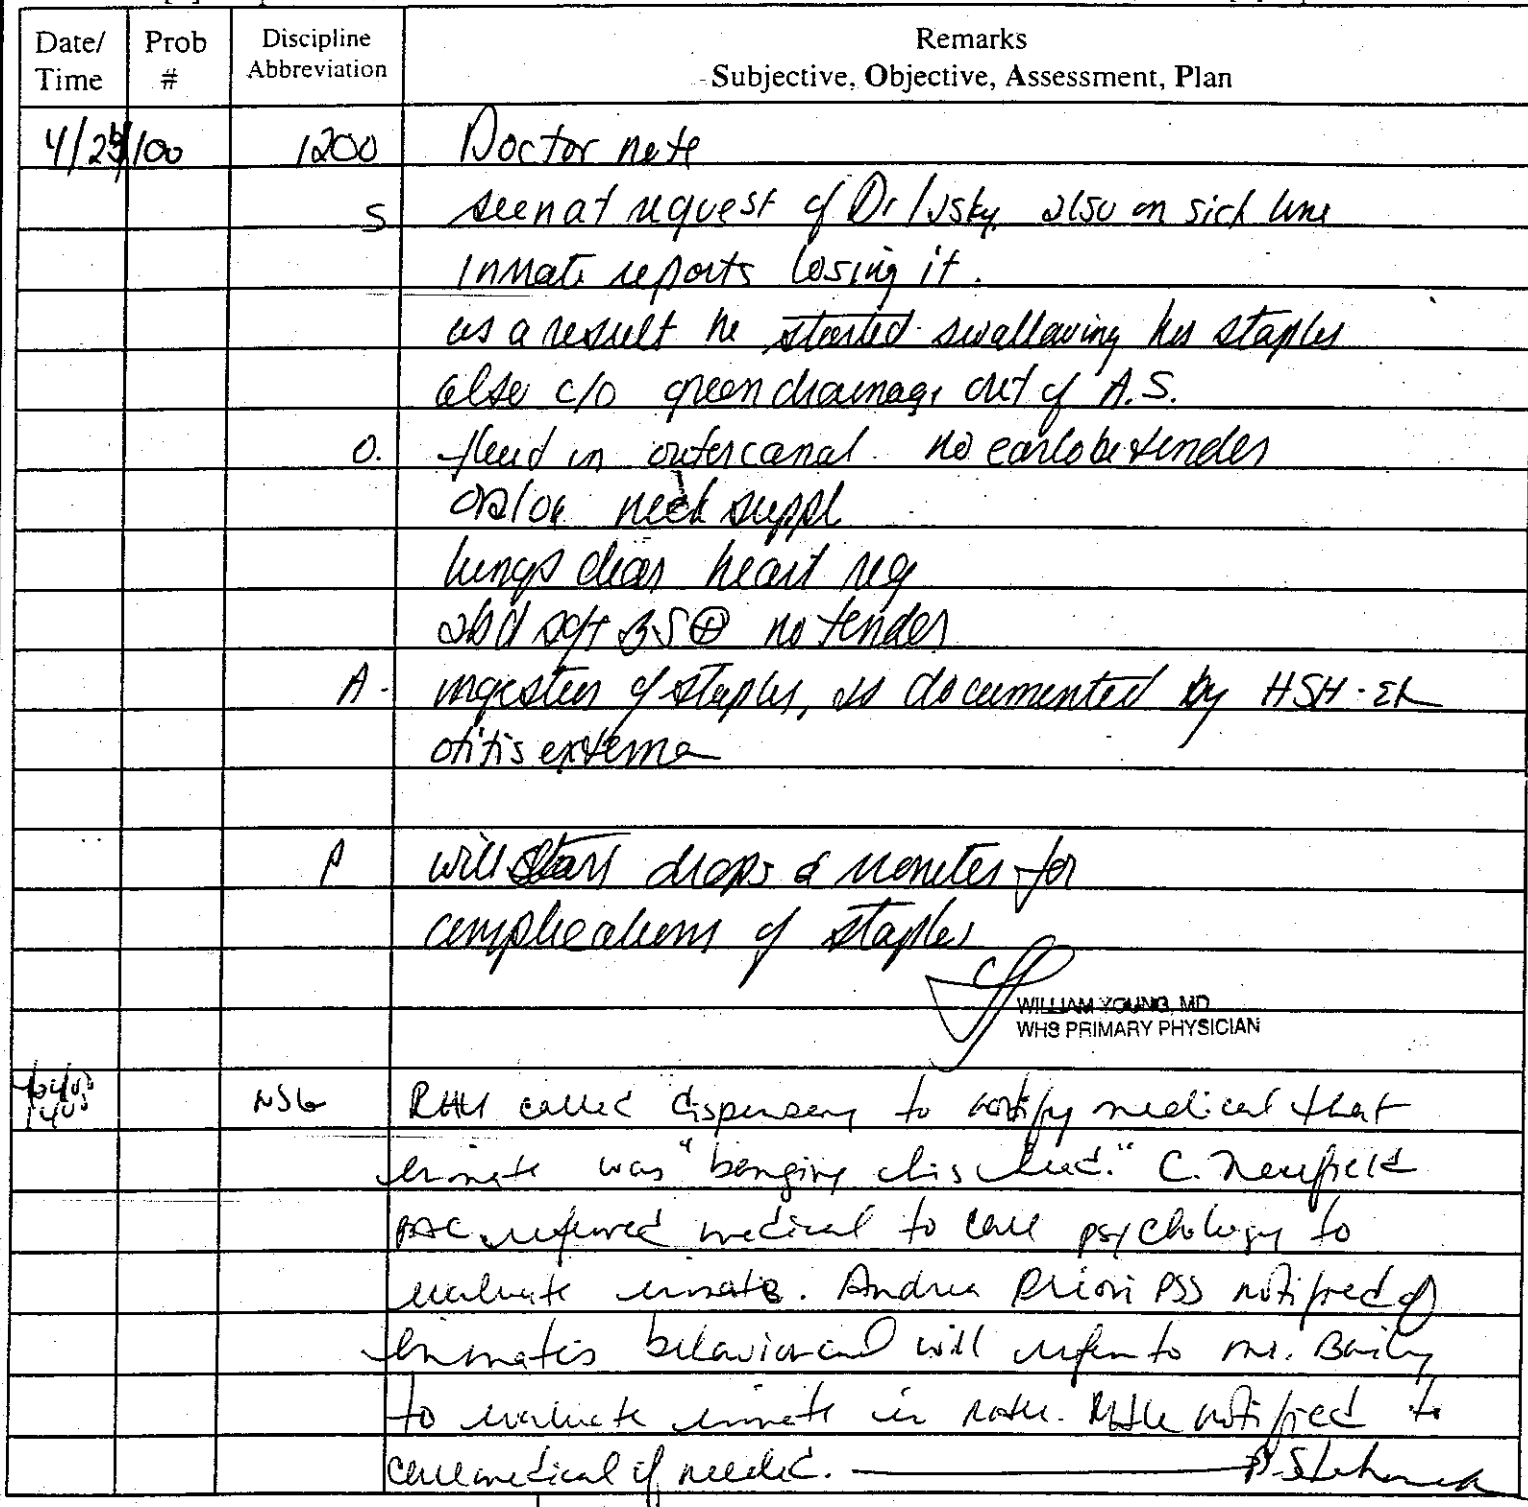 Date/ Time Prob # Discipline Abbreviation Remarks
Subjective, Objective, Assessment, Plan
4/2 /00 1200 Doctor note
S seen at request of Dr also on sick line
Inmate reports losing it.
as a result he started swallowing his staples
also c/o green drainage out of A.S.
O. fluid in outer canal no earlobe tender
neck suppl
lungs clear heart reg
abd soft BS ⊕ no tender
A. ingestion of staples, as documented by HSH-ER
otitis externa
P will start drops & monitor for
complications of staples
WILLIAM YOUNG, MD
WHS PRIMARY PHYSICIAN
NSG RHU called dispensary to notify medical that
inmate was "banging his head." C. Neufield
PAC referred medical to call psychology to
evaluate inmate. Andrea Priori PSS notified of
inmates behavior and will refer to Mr. Baily
to evaluate inmate in RHU. RHU notified to
call medical if needed.